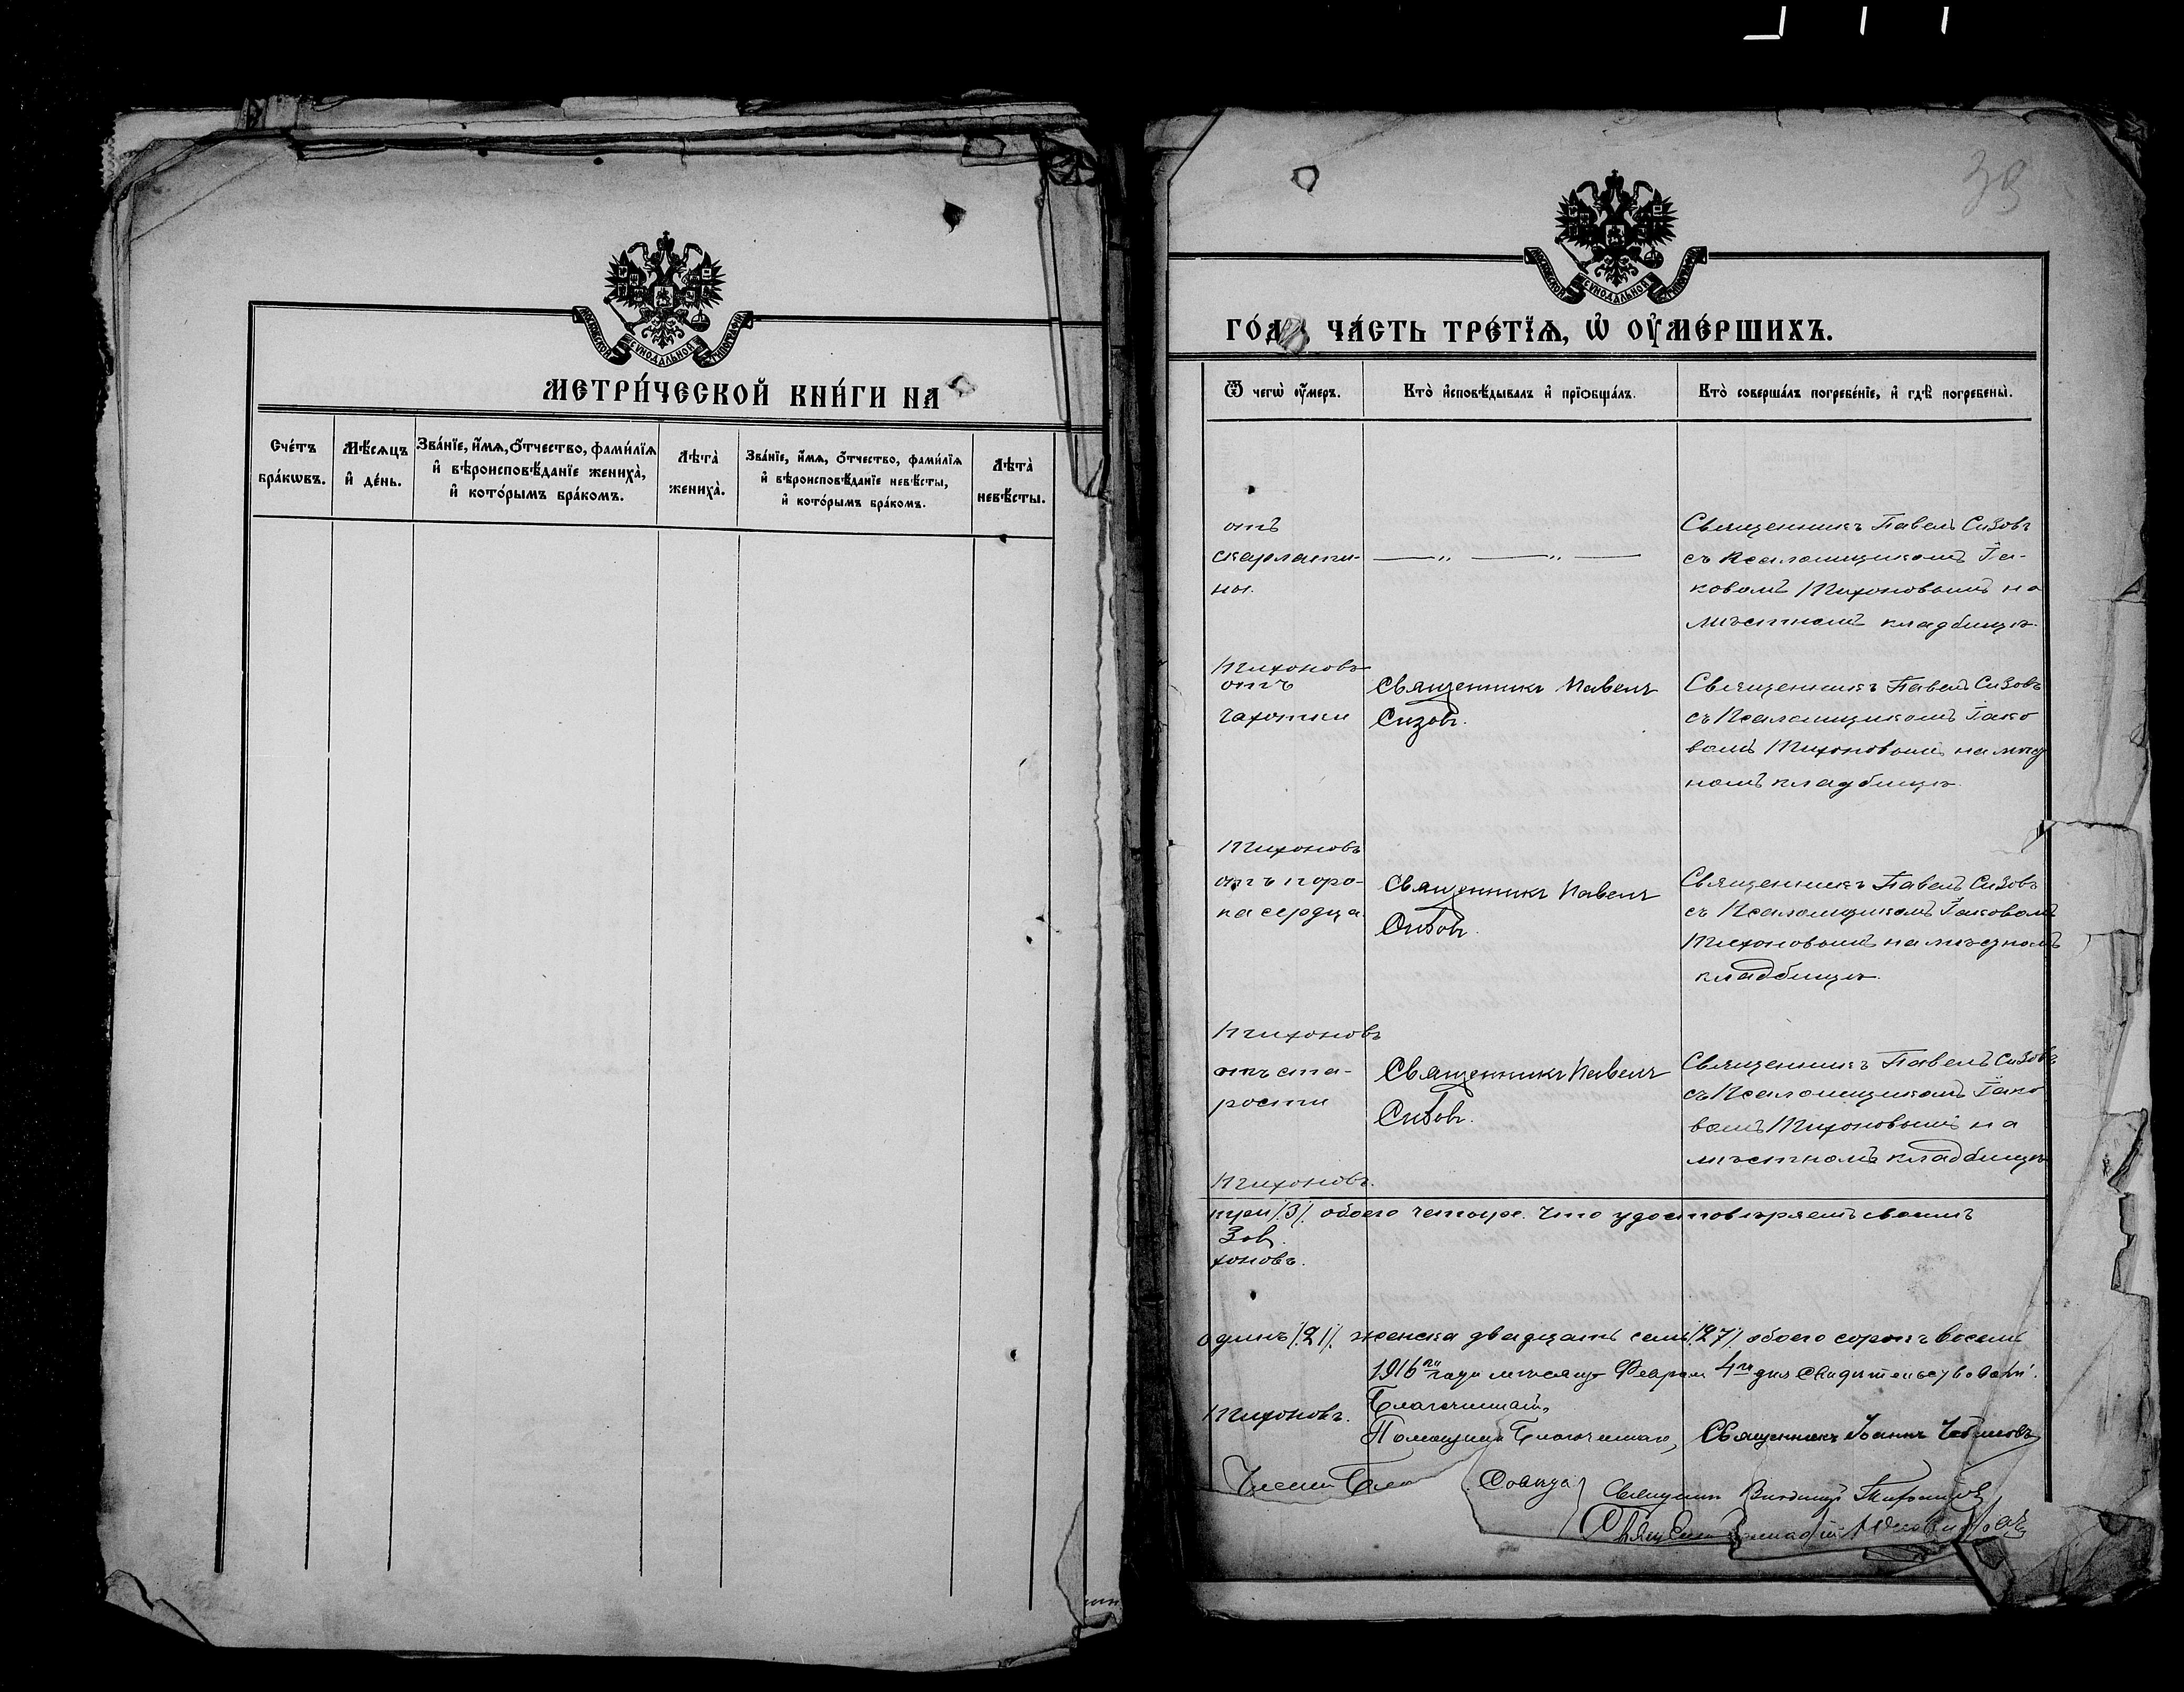 МОСКОВСКОЙ СѴНОДАЛЬНОЙ ТИПОГРАФІИ
МЕТРИ́ЧЕСКОЙ КНИ́ГИ НА
Сче́тъ бра́кѡвъ.
Мѣ́сѧцъ и҆ де́нь.
Зва́нїе, и҆́мѧ, ѻ҆́тчество, фами́лїѧ и҆ вѣроисповѣ́данїе жениха̀, и҆ кото́рымъ бра́комъ.
Лѣта̀ жениха̀.
Зва́нїе, и҆́мѧ, ѻ҆́тчество, фами́лїѧ и҆ вѣроисповѣ́данїе невѣ́сты, и҆ кото́рымъ бра́комъ.
Лѣта̀ невѣ́сты.
39
МОСКОВСКОЙ СѴНОДАЛЬНОЙ ТИПОГРАФІИ
ЧА́СТЬ ТРЕ́ТЇѦ, Ѡ҆ ОУ҆МЕ́РШИХЪ.
Ѿ чегѡ̀ оу҆́меръ.
Кто̀ и҆сповѣ́дывалъ и҆ прїѻбща́лъ.
Кто̀ соверша́лъ погребе́нїе, и҆ гдѣ̀ погребены̀.
отъ
скарлати-
ны.
— „ — „ —
Священникъ Павелъ Сизовъ
съ Псаломщикомъ Іа-
ковомъ Тихоновымъ на
мѣстномъ кладбищѣ.
Тихоновъ
отъ
чахотки
Священникъ Павелъ
Сизовъ.
Священникъ Павелъ Сизовъ
съ Псаломщикомъ Іако
вомъ Тихоновымъ на мѣс
номъ кладбищѣ.
Тихоновъ
отъ поро-
ка сердца.
Священникъ Павелъ
Сизовъ.
Священникъ Павелъ Сизовъ
съ Псаломщикомъ Іаковомъ
Тихоновымъ на мѣсномъ
кладбищѣ.
Тихоновъ
отъ ста-
рости
Священникъ Павелъ
Сизовъ.
Священникъ Павелъ Сизовъ
съ Псаломщикомъ Іако
вомъ Тихоновымъ на
мѣстномъ кладбищѣ
Тихоновъ.
/3/. обоего четыре. Что удостовѣряемъ своимъ
Зов.
хоновъ.
одинъ /21/. женска двадцать семь /27/. обоего сорокъ восемь
1916 го года мѣсяца 4 го дня свидѣтельствовали:
Благочинный,
Тихоновъ.
Помощникъ Благочиннаго, Священникъ Іоаннъ
Члены Бла Совѣта
Священникъ
Священникъ